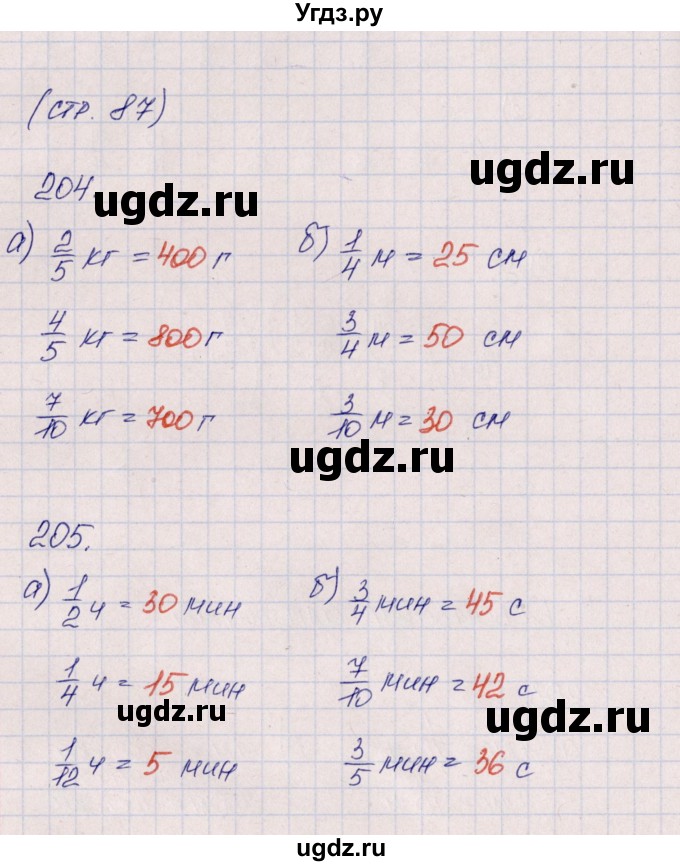 Угдз.ру
(стр. 87)
ugdz.ru
204
ugdz.ru
а) 2/5 кг = 400 г б) 1/4 м = 25 см
4/5 кг = 800 г 3/4 м = 50 см
7/10 кг = 700 г 3/10 м = 30 см
ugdz.ru
205.
а) 1/2 ч = 30 мин б) 3/4 мин = 45 с
1/4 ч = 15 мин 7/10 мин = 42 с
ugdz.ru ugdz.ru
1/12 ч = 5 мин 3/5 мин = 36 с
ugdz.ru